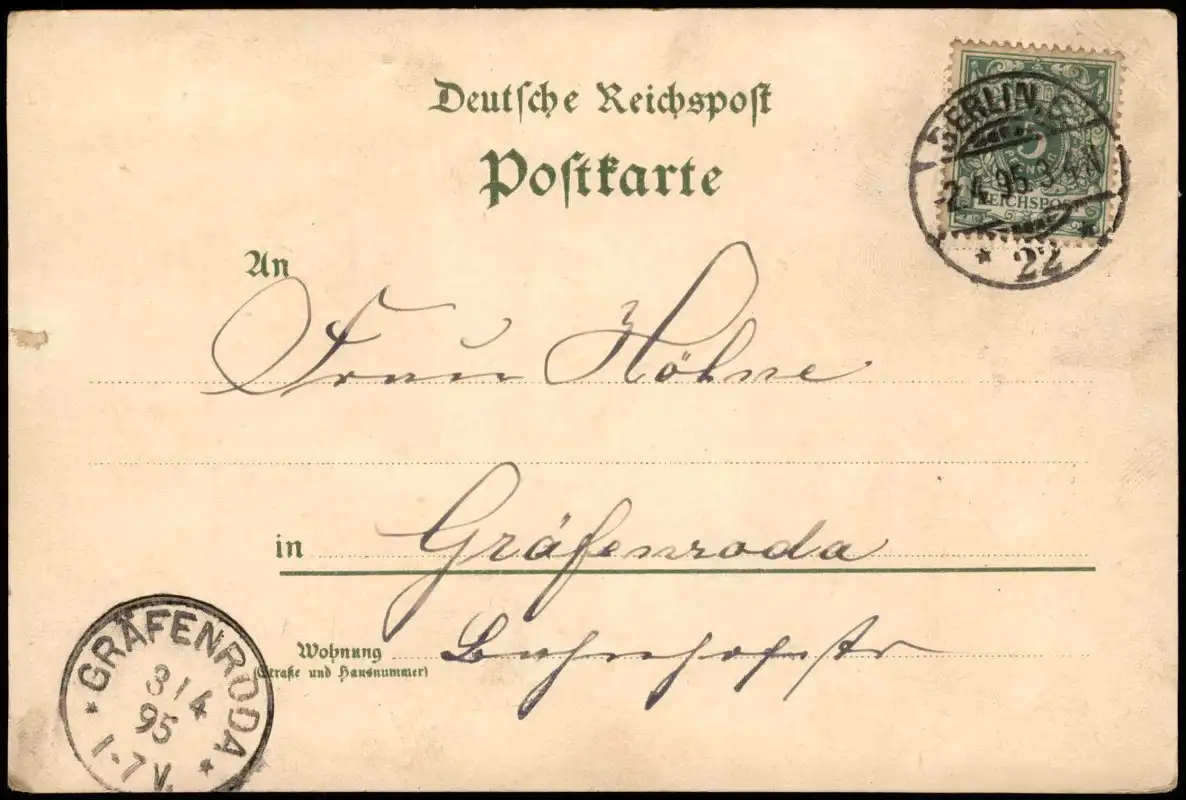 Deutsche Reichspost
Postkarte
BERLIN. C.
5
2.4.95.3-4N
REICHSPOST
* 22 *
An
Frau Höhne
in Gräfenroda
Wohnung Bahnhofstr
(Straße und Hausnummer)
* GRÄFENRODA *
3/4
95
1-7V.